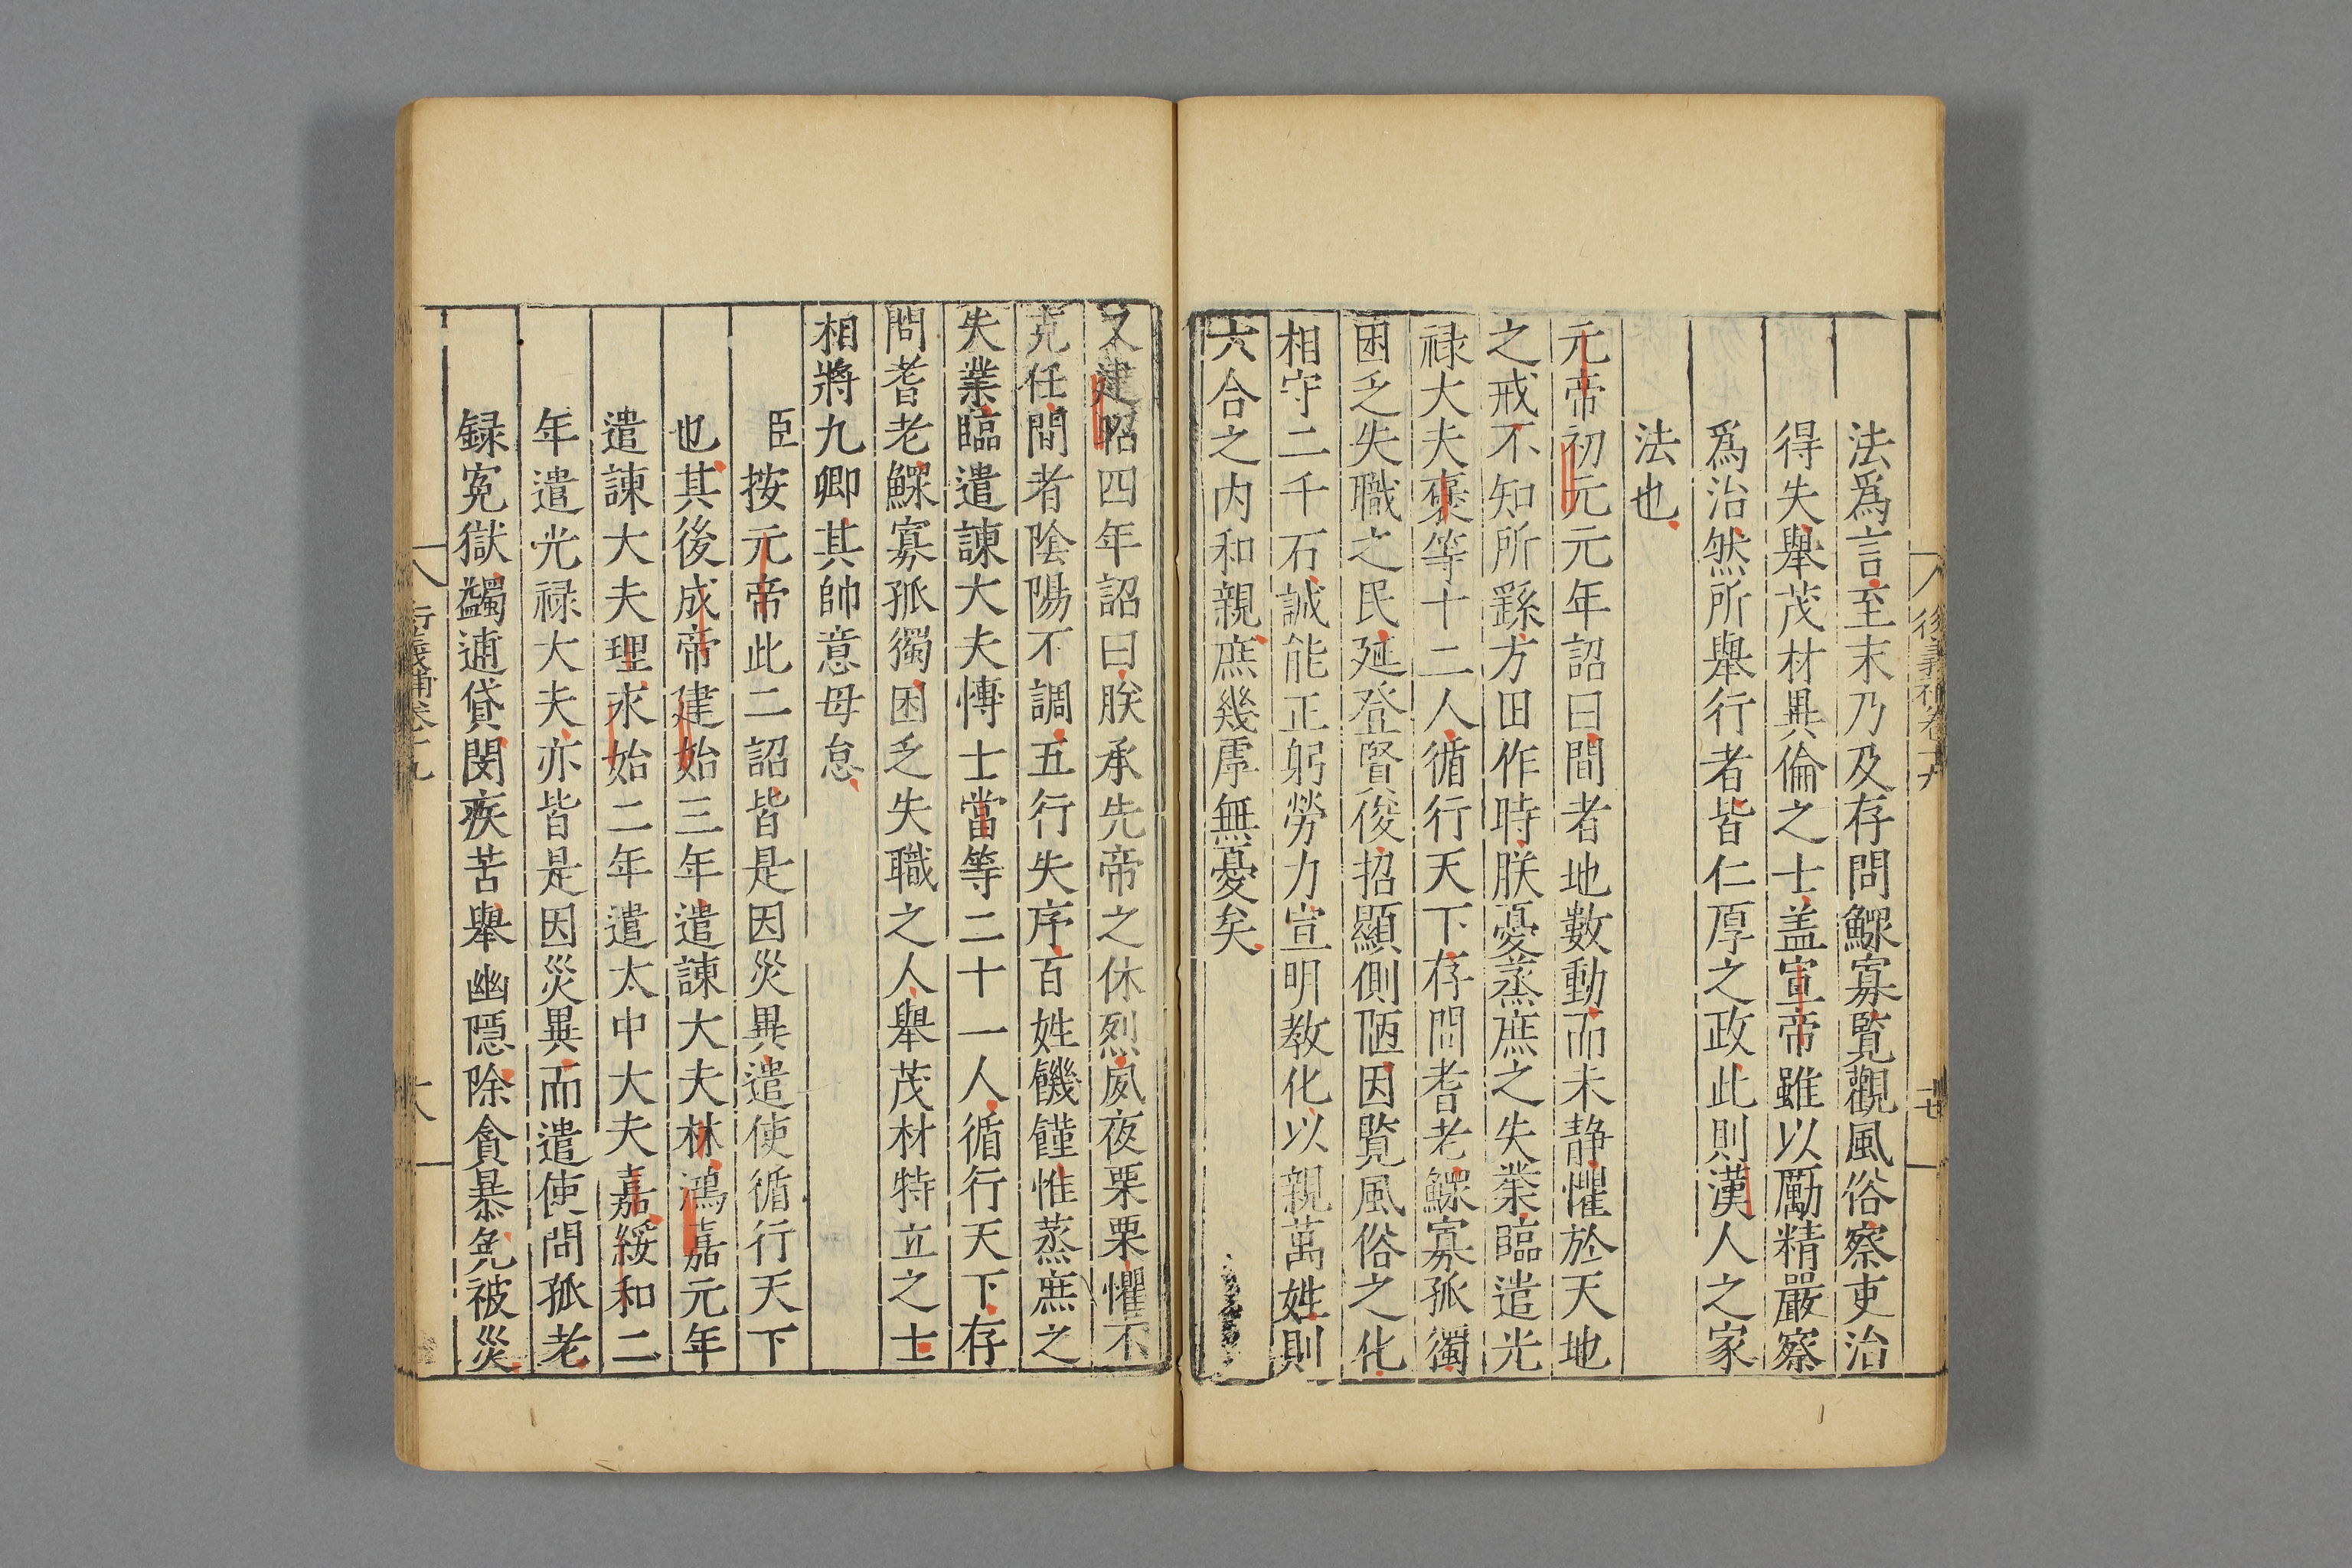 法爲言至末乃及存問鰥寡覽觀風俗察吏治
得失舉茂材異倫之士盖宣帝雖以勵精嚴察
爲治然所舉行者皆仁厚之政此則漢人之家
法也
元帝初元元年詔曰間者地數動而未静懼於天地
之戒不知所繇方田作時朕憂蒸庶之失業臨遣光
禄大夫褒等十二人循行天下存問耆老鰥寡孤獨
困乏失職之民延登賢俊招顯側陋因覽風俗之化
相守二千石誠能正躬勞力宣明教化以親萬姓則
六合之内和親庶幾虖無憂矣
又建昭四年詔曰朕承先帝之休烈夙夜栗栗懼不
克任間者陰陽不調五行失序百姓饑饉惟蒸庶之
失業臨遣諫大夫博士當等二十一人循行天下存
問耆老鰥寡孤獨困乏失職之人舉茂材特立之士
相將九卿其帥意毋怠
臣按元帝此二詔皆是因災異遣使循行天下
也其後成帝建始三年遣諫大夫林鴻嘉元年
遣諫大夫理永始二年遣太中大夫嘉綏和二
年遣光禄大夫亦皆是因災異而遣使問孤老
録寃獄蠲逋貸閔疾苦舉幽隱除貪暴免被災